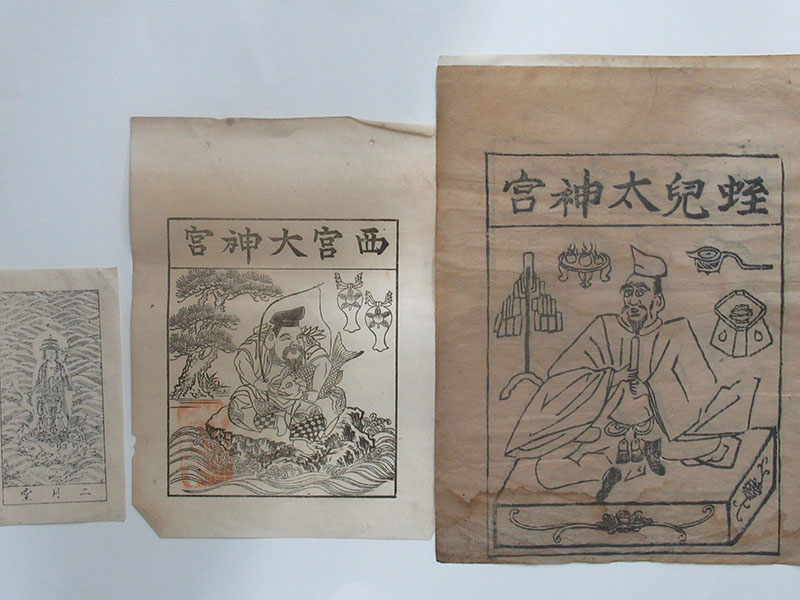 蛭兒太神宮
西宮大神宮
二月堂